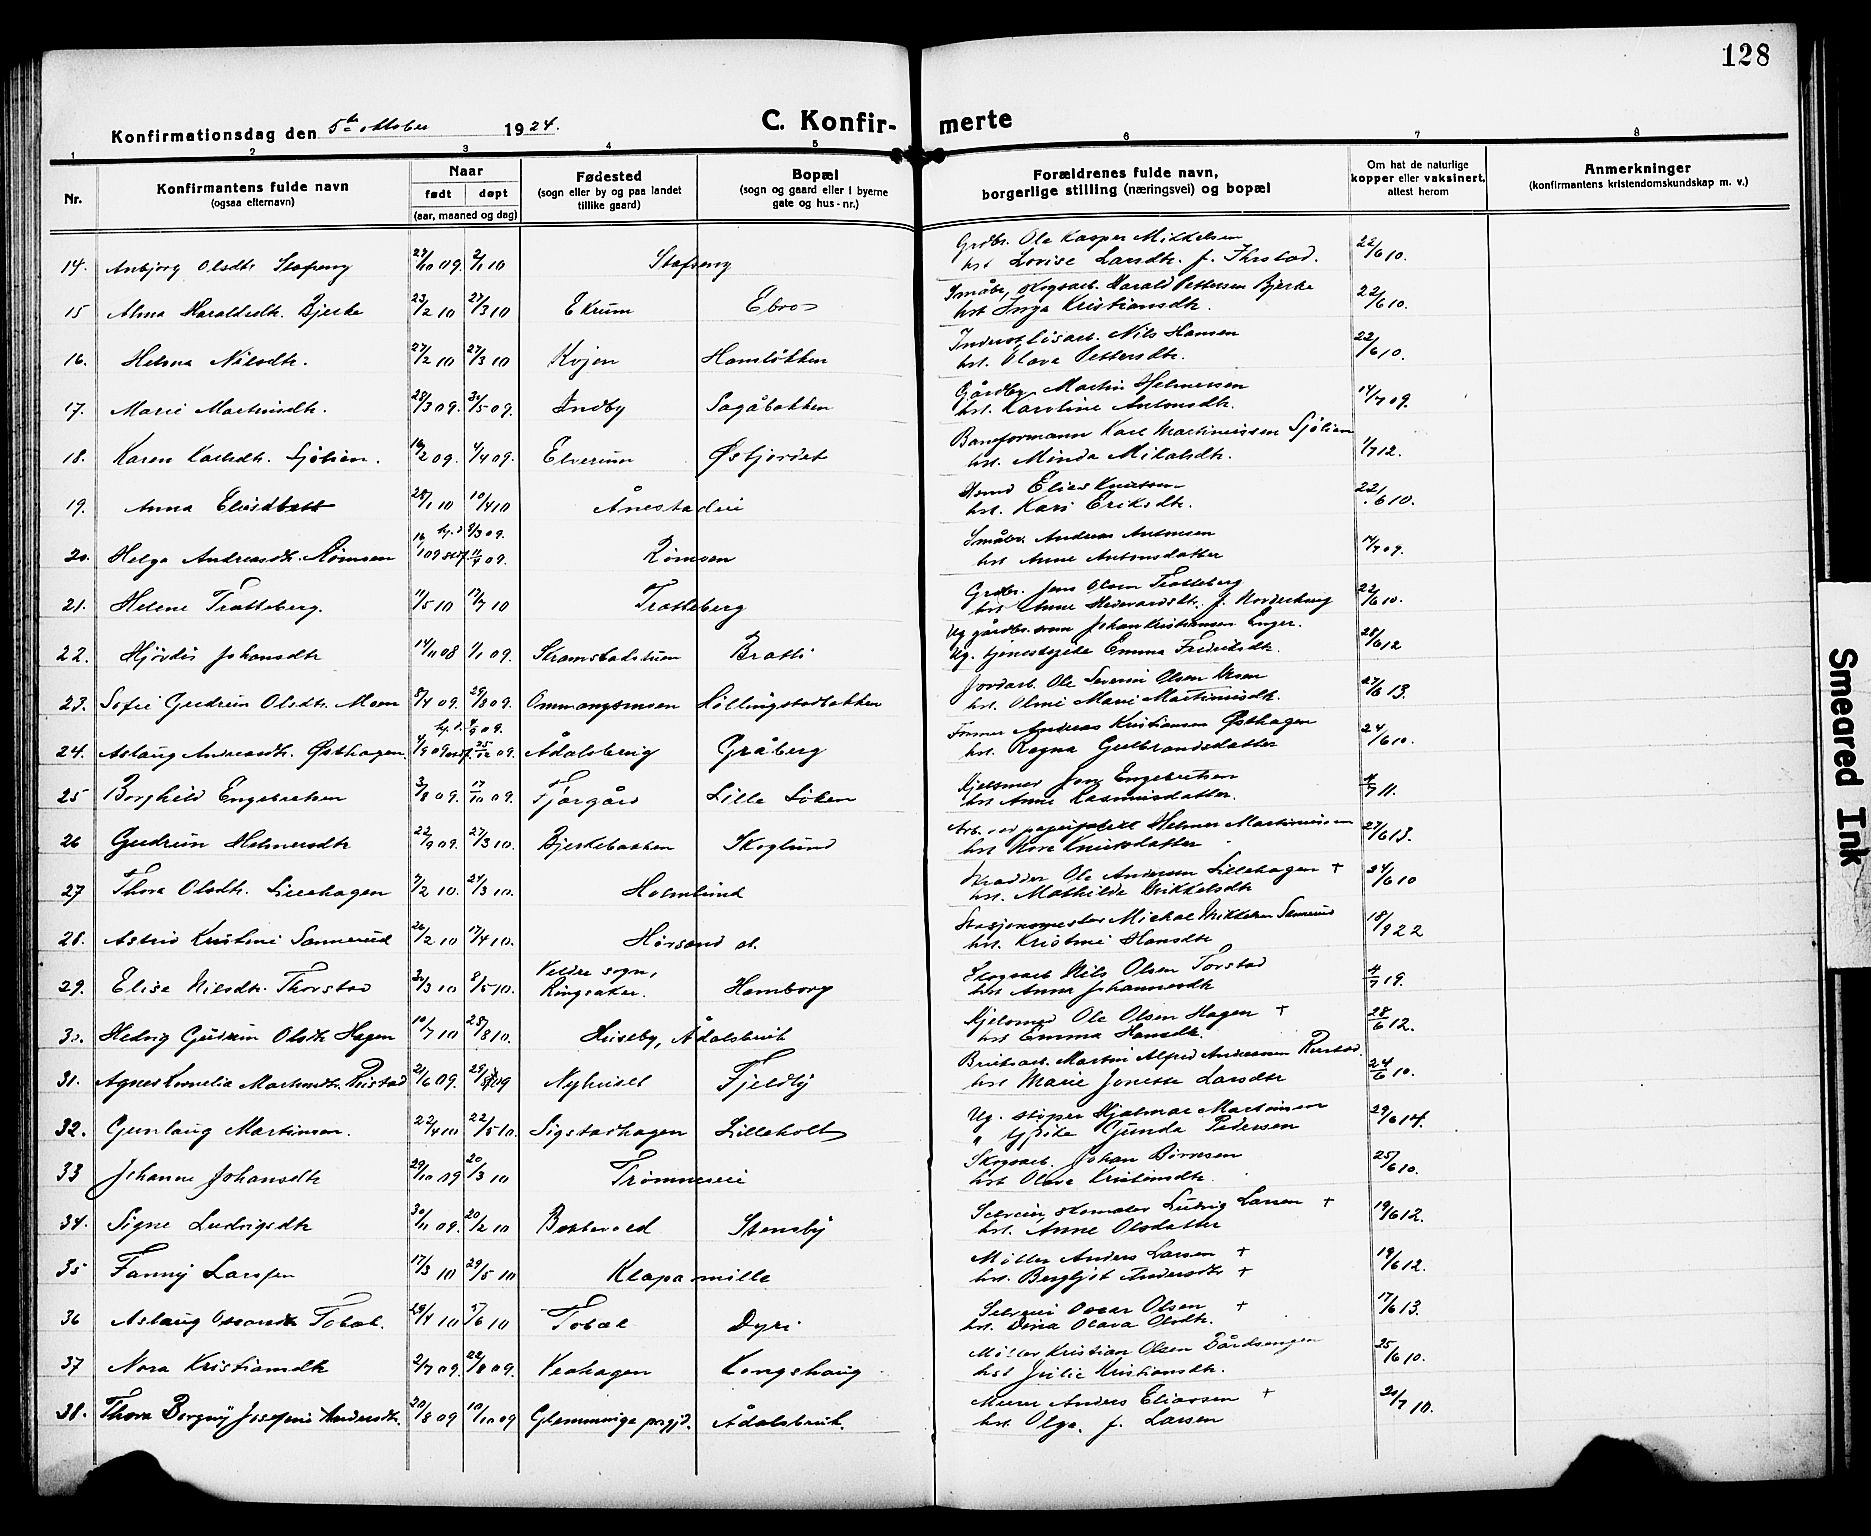 128
Konfirmationsdag den 5te oktober 1924.
C. Konfir-merte
1 2 3 4 5 6 7 8
Nr.
Konfirmantens fulde navn
(ogsaa efternavn)
Naar
født døpt
(aar, maaned og dag)
Fødested
(sogn eller by og paa landet
tillike gaard)
Bopæl
(sogn og gaard eller i byerne
gate og hus-nr.)
Forældrenes fulde navn,
borgerlige stilling (næringsvei) og bopæl
Om hat de naturlige
kopper eller vaksinert,
attest herom
Anmerkninger
(konfirmantens kristendomskundskap m. v.)
Grdbr. Ole Kasper Mikkelsen
14. Anbjørg Olsdtr. Stafseng 27/10 09. 2/1 10 Stafseng hst. Lovise Larsdtr. f. Ihrstad. 22/6 10.
Småbr., skogsarb. Harald Pettersen Bjerke
15 Alma Haraldsdtr. Bjerke 23/2 10 27/3 10 Ekrum Ebro hst. Inga Kristiansdtr. 22/6 10.
Nils Hansen
16. Helma Nilsdtr. 27/2 10 27/3 10 Kvjen Hamsløkken hst. Olava Pettersdtr. 22/6 10.
Gårdbr. Martin Helmersen
17. Marie Martinsdtr. 28/3 09. 31/5 09. Indby Sagåbakken hst. Karoline Antonsdtr. 14/7 09.
Baneformann Karl Martiniussen Sjølien
18. Karen Karlsdtr. Sjølien. 16/2 09. 4/4 09. Elverum Østjordet hst. Minda Mikalsdtr. 1/7 12.
Smed Elias Knutsen
19. Anna Eliasdatter 28/1 10 10/4 10 Ånestadeie hst. Kari Eriksdtr. 22/6 10.
hj.d. 9/3 09.
Småbr. Andreas Antonsen
20. Helga Andreasdtr. Rømsen 16/1 09 stadf. 11/4 09. Rømsen hst. Anne Antonsdatter 14/7 09.
Grdbr. Jens Olsen Tratteberg
21. Helene Tratteberg. 11/5 10 17/7 10 Tratteberg hst. Anne f. Nordenberg 22/6 10.
Ug. gårdbr.svenn Johan Kristiansen Enger.
22. Hjørdis Johansdtr 14/11 08 1/1 09. Stramstadstuen Bratli Ug. tjenestepike Emma Fredriksdtr. 28/6 12
Jordarb. Ole Severin Olsen Moen
23. Sofie Gudrun Olsdtr. Moen 8/4 09. 29/8 09. Ommangsmoen Hollingstadbakken hst. Oline Marie Martinusdtr. 27/6 13.
hj.d. 4/9 09.
Former Andreas Kristiansen Østhagen
24. Aslaug Andreasdtr. Østhagen. 4/9 09 stadf. 25/12 09. Ådalsbrug Gråberg hst. Ragna Gulbrandsdatter 24/6 10.
Hjelsmed Jens Engebretsen
25 Borghild Engebretsen 3/8 09. 17/10 09. Fjærgård Lille Løken hst. Anne Rasmusdatter. 4/7 11.
Arb. ved papirfabrik Helmer Martiniussen
26 Gudrun Helmersdtr 22/9 09. 27/3 10. Bjerkebakken Skoglund hst. Nora Knutsdatter 27/6 13.
Skredder Ole Andersen Lillehagen +
27 Thora Olsdtr. Lillehagen 7/2 10. 24/3 10. Holmlund hst. Mathilde Mikkelsdtr 24/6 10
Stasjonsmester Mikael Mikkelsen Sannerud
28. Astrid Kristine Sannerud 26/2 10 17/4 10. Hørsand st. hst. Kristine Hansdtr 18/9 22
Skogsarb. Nils Olsen Torstad
Veldre sogn,
29. Elise Nilsdtr. Thorstad 31/3 10 8/5 10. Ringsaker. Hamborg hst. Anna Johannesdtr 4/7 19.
Hjelsmed Ole Olsen Hagen +
30. Hedvig Gudrun Olsdtr Hagen 10/7 10 28/8 10. Huseby, Ådalsbruk hst. Emma Hansdtr. 28/6 12.
Bruksarb. Martin Alfred Andersen Rustad.
31. Agnes Kornelia Martinsdtr. Rustad 21/6 09. 29/8 09 Nyhuset Fjeldby hst Marie Jonette Larsdtr 24/6 10.
Ug. støper Hjalmar Martinsen
32. Gunlaug Martinsen. 22/4 10 22/5 10. Sigstadhagen Lilleholt " tj.pike Gunda Pedersen 29/6 14.
Skogsarb. Johan Børresen
33 Johanne Johansdtr 29/10 09 20/3 10 Trømneseie hst Olava Kristiansdtr. 25/6 10.
Selveier, skomaker Ludvig Larsen +
34. Signe Ludvigsdtr 30/11 09. 20/2 10 Bakkevold Stensby hst. Anne Olsdatter 19/6 12.
Møller Anders Larsen +
35 Fanny Larsen 17/3 10 29/5 10 Klapa mølle hst. Bergljot Andersdtr + 19/6 12.
Selveier Oscar Olsen +
36 Aslaug Oscarsdtr Tobæk. 29/4 10 5/6 10 Tobæk Dyri hst. Dina Olava Olsdtr. 17/6 13.
Møller Kristian Olsen Bårdsengen
37 Nora Kristiansdtr 2/7 09. 22/8 09. Veahagen Kongshaug hst Julie Kristiansdtr. 25/6 10.
Murer Anders Eliassen +
38. Thora Borgny Josefine Andersdtr. 20/8 09 10/10 09 Glemminge prgjd. Ådalsbruk. hst. Olga f. Larsen 20/7 10.
Smeared Ink